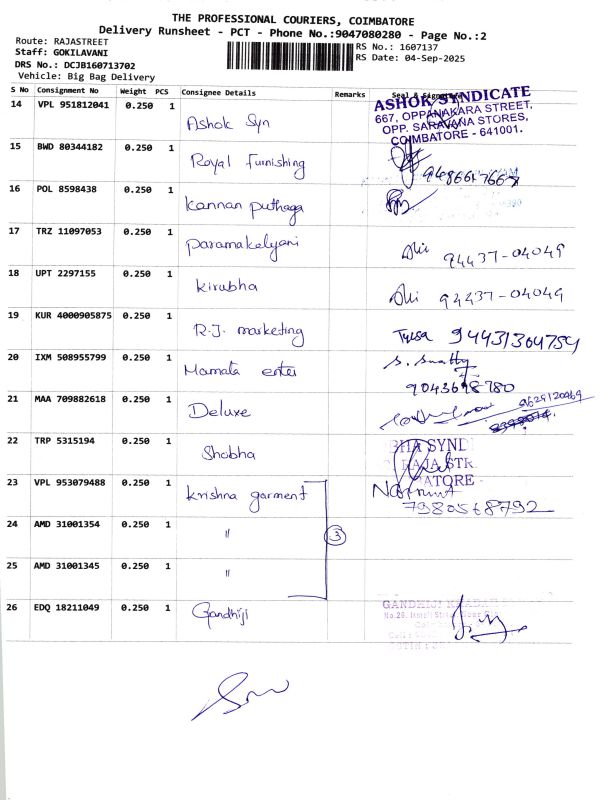 THE PROFESSIONAL COURIERS, COIMBATORE
Delivery Runsheet - PCT - Phone No.:9047080280 - Page No.:2
Route: RAJASTREET
Staff: GOKILAVANI
DRS No.: DCJB160713702
Vehicle: Big Bag Delivery
RS No.: 1607137
RS Date: 04-Sep-2025
S No Consignment No Weight PCS Consignee Details Remarks Seal & Signature
14 VPL 951812041 0.250 1 Ashok Syn
ASHOK SYNDICATE
667, OPPANAKARA STREET,
OPP. SARAVANA STORES,
COIMBATORE - 641001.
15 BWD 80344182 0.250 1 Royal furnishing
16 POL 8598438 0.250 1 Kannan puthaga
17 TRZ 11097053 0.250 1 Paramakalyani 94437-04049
18 UPT 2297155 0.250 1 Kirubha 94437-04049
19 KUR 4000905875 0.250 1 R.J. marketing
20 IXM 508955799 0.250 1 Mamata enter
21 MAA 709882618 0.250 1 Deluxe
22 TRP 5315194 0.250 1 Shobha
HA SYND
RAJA STR
ATORE -
23 VPL 953079488 0.250 1 Krishna garment
7980568792
24 AMD 31001354 0.250 1 " 3
25 AMD 31001345 0.250 1 "
26 EDQ 18211049 0.250 1 Gandhiji
GANDHIJI